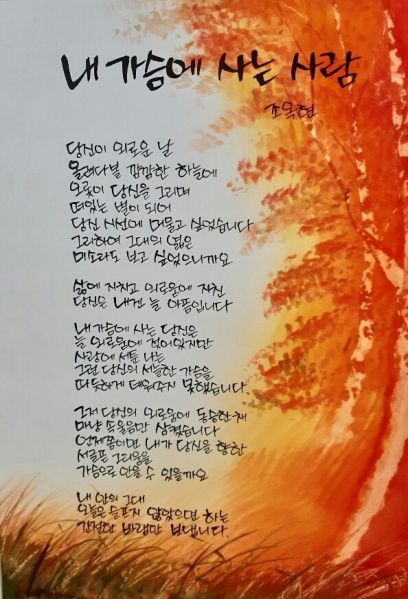 내 가슴에 사는 사람
조옥현
당신이 외로운 날
올려다볼 깜깜한 하늘에
오롯이 당신을 그리며
떠있는 별이 되어
당신 시선에 머물고 싶었습니다
그리하여 그대의 엷은
미소라도 보고 싶었으니까요
삶에 지치고 외로움에 지친
당신은 내겐 늘 아픔입니다
내 가슴에 사는 당신은
늘 외로움에 젖어있지만
사랑에 서툰 나는
그런 당신의 서늘한 가슴을
따듯하게 데워주지 못했습니다.
그저 당신의 외로움에 동승한 채
매냥 속울음만 삼켰습니다
언제쯤이면 내가 당신을 향한
서글픈 그리움을
가슴으로 안을 수 있을까요
내 안의 그대
오늘은 슬프지 않았으면 하는
간절한 바램만 보냅니다.